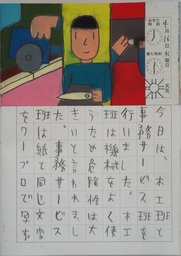 4月16日
今日は、木工班と
事務サービス班を
行いました。木工
班は機械をよく使
うため危険性は大
きいと言われまし
た。事務サービス
班は紙と同じ文字
をワープロで写